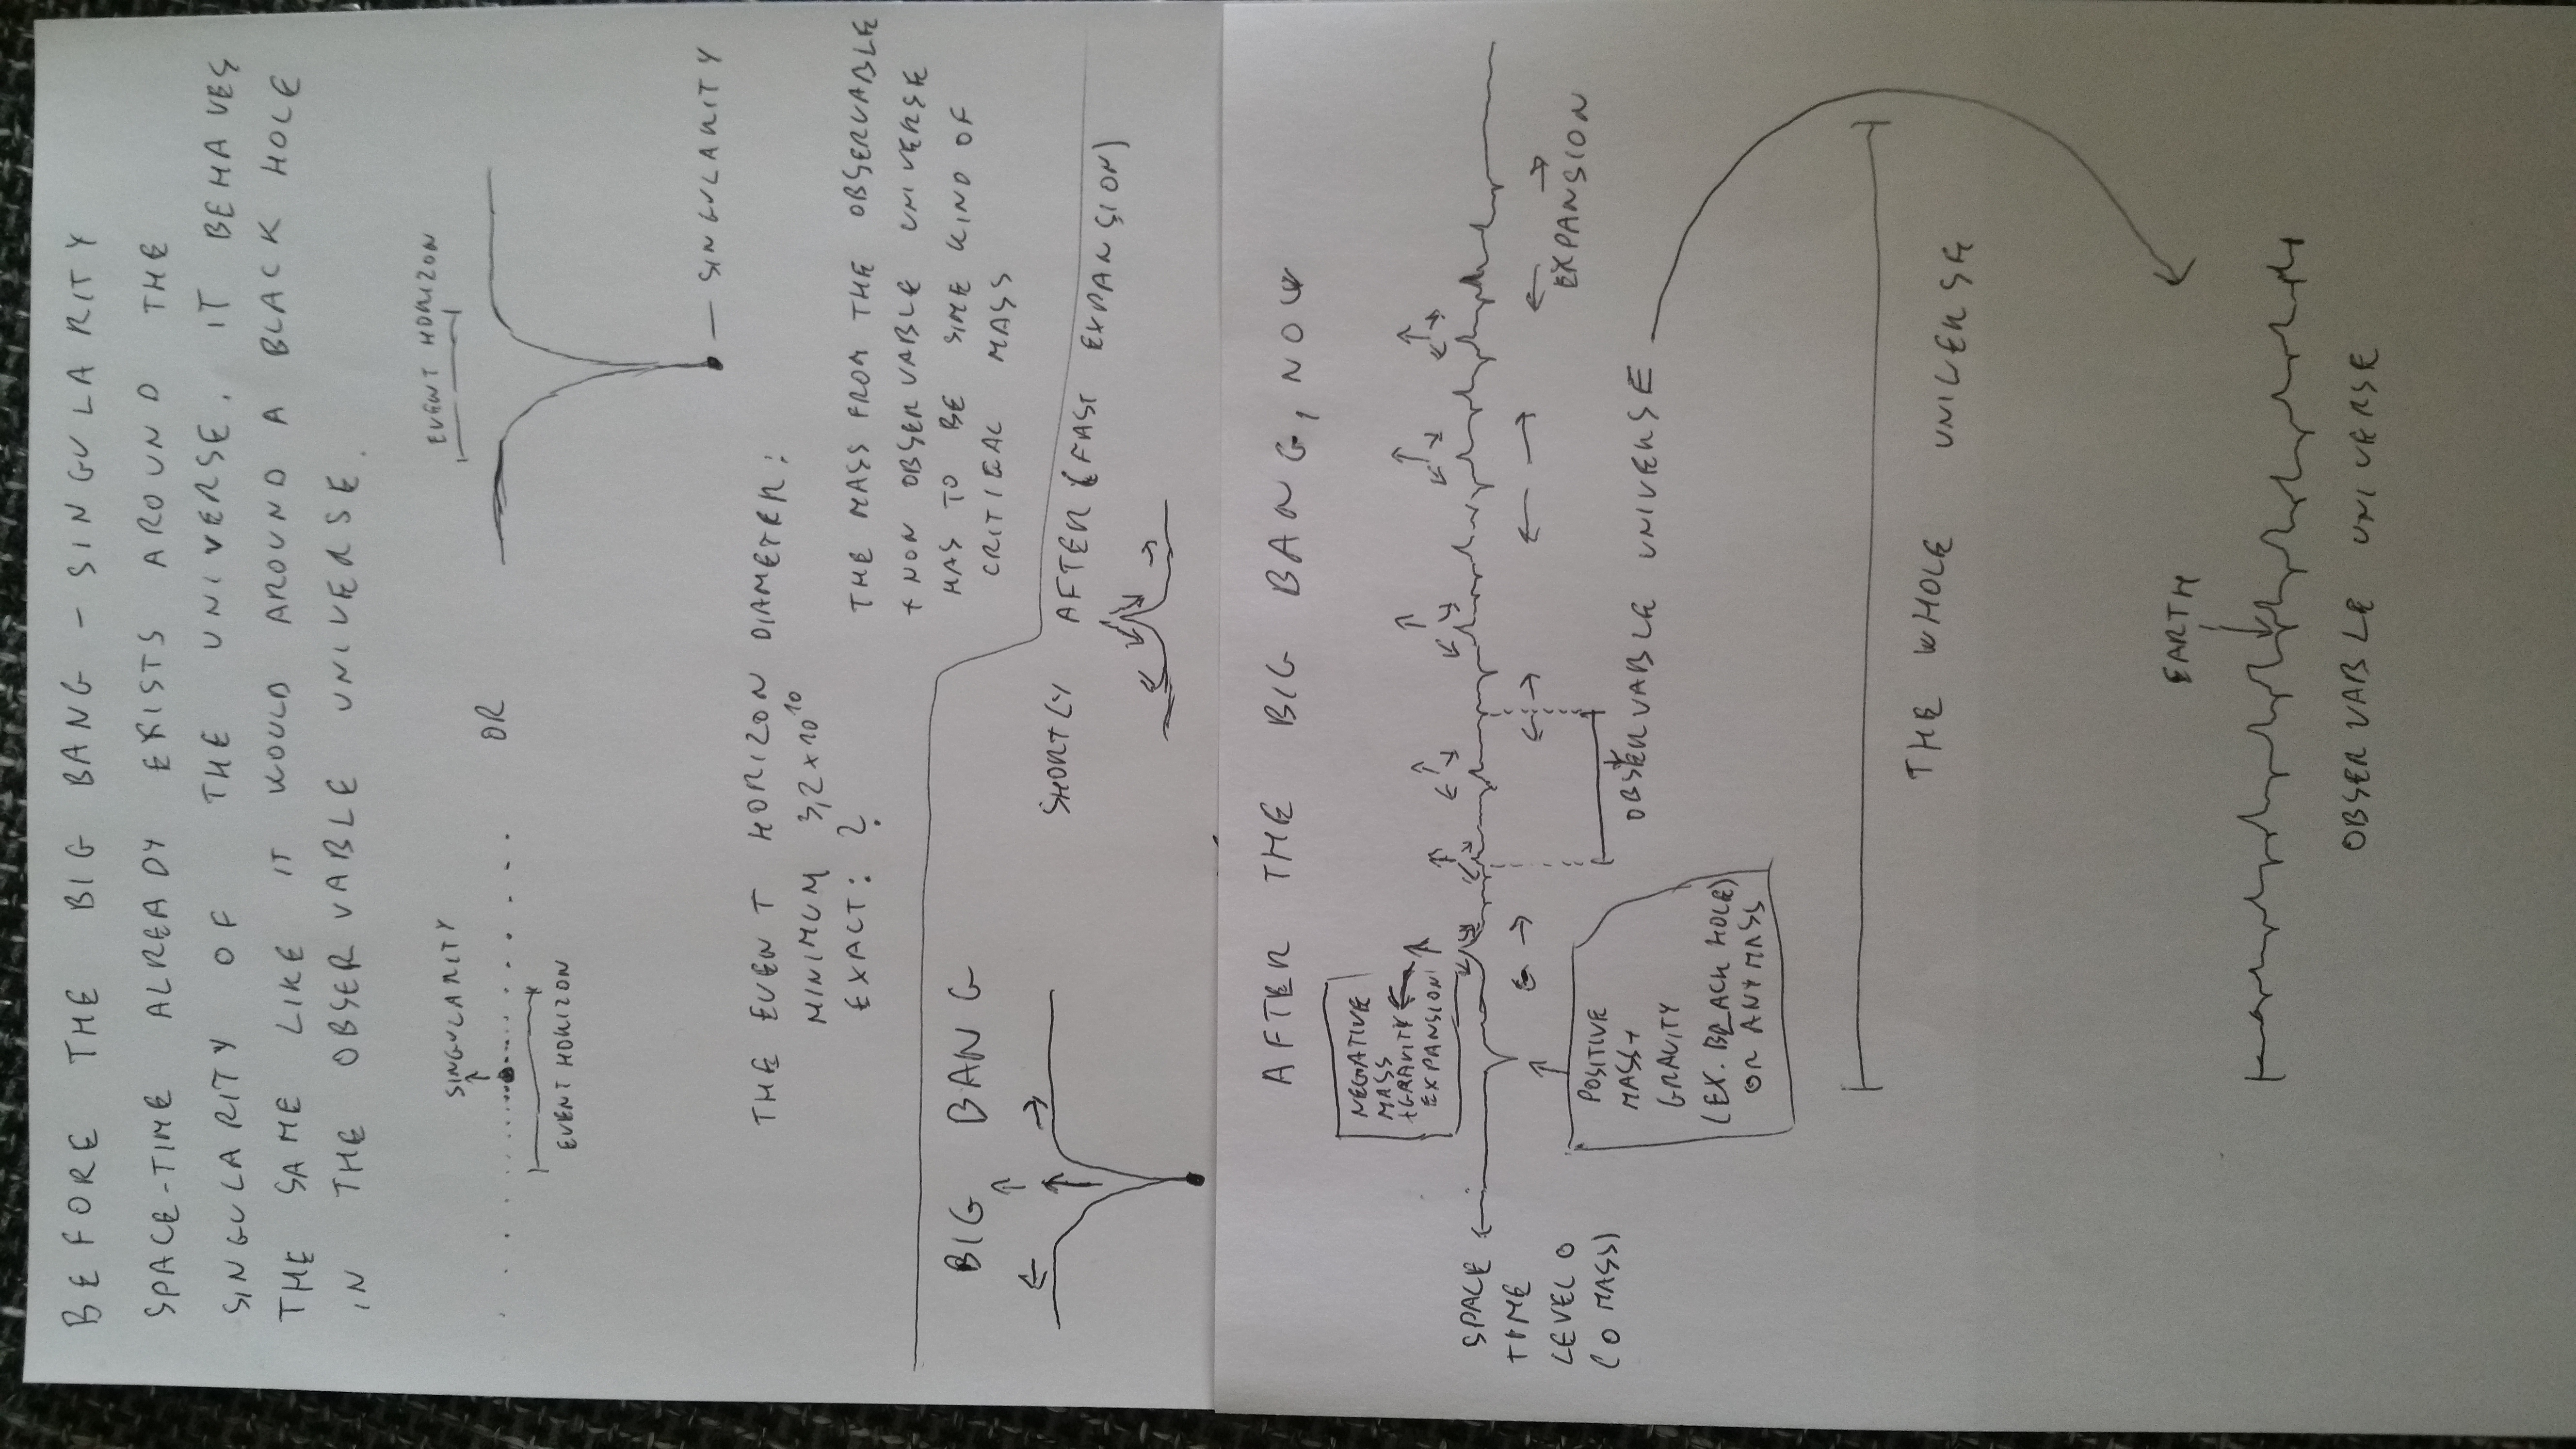 BEFORE THE BIG BANG - SINGULARITY
SPACE-TIME ALREADY EXISTS AROUND THE
SINGULARITY OF THE UNIVERSE, IT BEHAVES
THE SAME LIKE IT WOULD AROUND A BLACK HOLE
IN THE OBSERVABLE UNIVERSE.
SINGULARITY
EVENT HORIZON
OR
EVENT HORIZON
— SINGULARITY
THE EVENT HORIZON DIAMETER:
MINIMUM 3,2 x 10^10
EXACT: ?
THE MASS FROM THE OBSERVABLE
+ NON OBSERVABLE UNIVERSE
HAS TO BE SOME KIND OF
CRITICAL MASS
BIG BANG
SHORTLY AFTER (FAST EXPANSION)
AFTER THE BIG BANG, NOW
NEGATIVE
MASS
+GRAVITY
EXPANSION
SPACE
TIME
LEVEL 0
(0 MASS)
POSITIVE
MASS+
GRAVITY
(EX. BLACK HOLE)
OR ANY MASS
EXPANSION
OBSERVABLE UNIVERSE
THE WHOLE UNIVERSE
EARTH
OBSERVABLE UNIVERSE